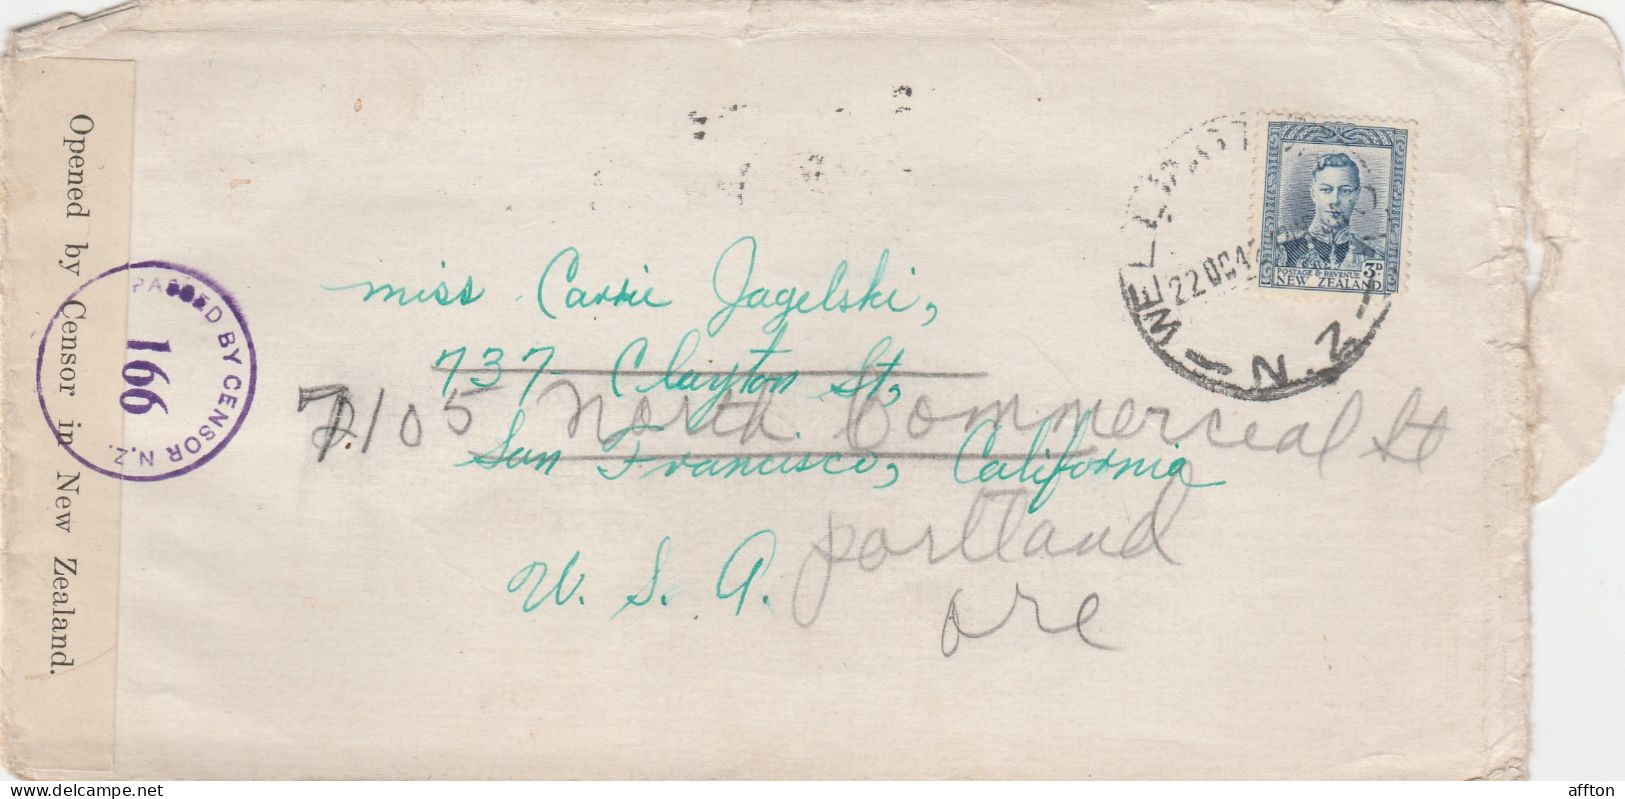 Opened by Censor in New Zealand.
PASSED BY CENSOR N.Z.
166
WELLINGTON
22 OC 4
N.Z.
3D
POSTAGE & REVENUE
NEW ZEALAND
miss Carrie Jagelski,
737 Clayton St,
7105 North Commerceal St
San Francisco, California
portland
U. S. A.
ore
delcampe.net
affton